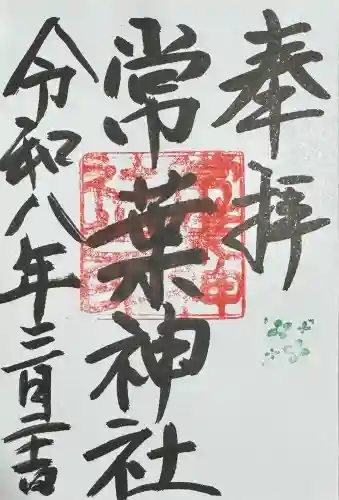 奉拝
常葉神社
令和八年三月二十一日